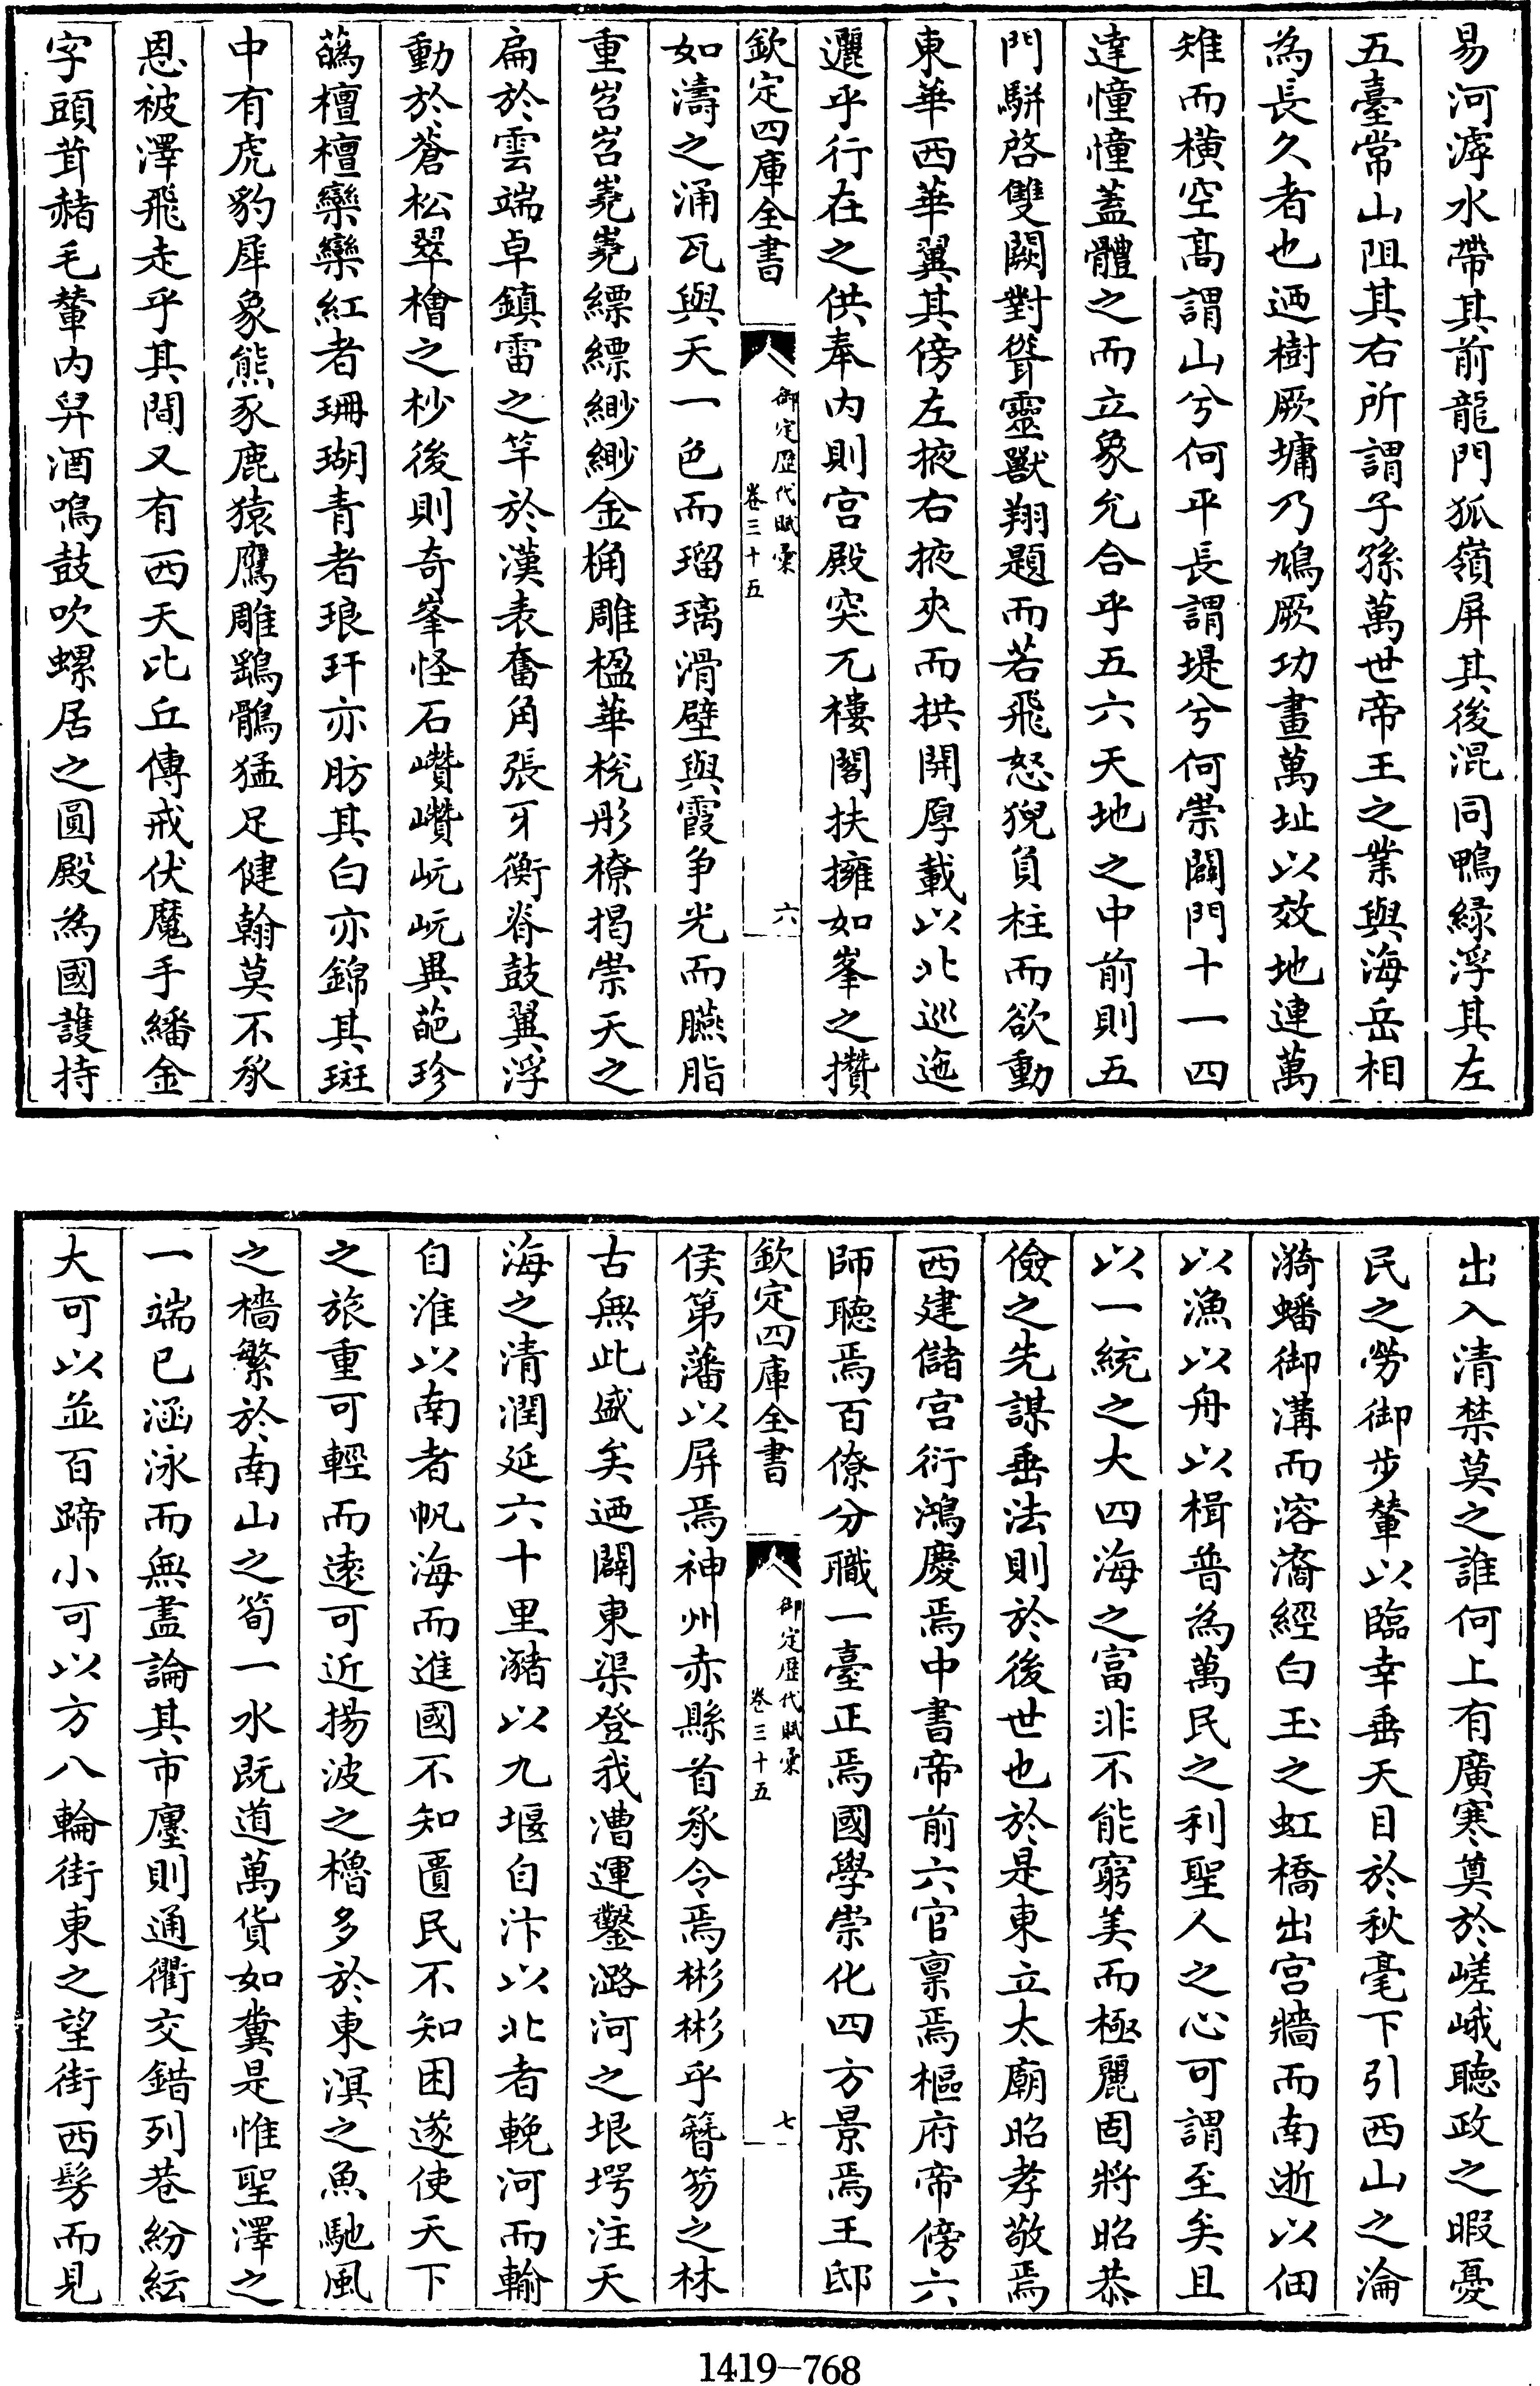 易河滹水帶其前龍門狐嶺屏其後混同鴨緑浮其左
五臺常山阻其右所謂子孫萬世帝王之業與海岳相
為長久者也迺樹厥墉乃鳩厥功畫萬址以效地連萬
雉而横空髙謂山兮何平長謂堤兮何崇闢門十一四
達憧憧蓋體之而立象允合乎五六天地之中前則五
門駢啓雙闕對聳靈獸翔題而若飛怒猊負柱而欲動
東華西華翼其傍左掖右掖夾而拱開厚載以北巡迤
邐乎行在之供奉内則宫殿突兀樓閣扶擁如峯之攢
欽定四庫全書
御定歴代賦彙
卷三十五
六
如濤之涌瓦與天一色而瑠璃滑壁與霞争光而臙脂
重岧岧嶤嶤縹縹緲緲金桷雕楹華梲彤橑揭崇天之
扁於雲端卓鎮雷之竿於漢表奮角張牙衡脊鼓翼浮
動於蒼松翠檜之杪後則奇峯怪石巑巑岏岏異葩珍
蘤檀檀欒欒紅者珊瑚青者琅玕亦肪其白亦錦其斑
中有虎豹犀象熊豕鹿猿鷹雕鶂鶻猛足健翰莫不承
恩被澤飛走乎其間又有西天比丘傳戒伏魔手繙金
字頭茸赭毛輦内舁酒鳴鼓吹螺居之圓殿為國護持
出入清禁莫之誰何上有廣寒奠於嵯峨聽政之暇憂
民之勞御步輦以臨幸垂天目於秋毫下引西山之淪
漪蟠御溝而溶㵝經白玉之虹橋出宫牆而南逝以佃
以漁以舟以楫普為萬民之利聖人之心可謂至矣且
以一統之大四海之富非不能窮美而極麗固將昭恭
儉之先謀垂法則於後世也於是東立太廟昭孝敬焉
西建儲宫衍鴻慶焉中書帝前六官禀焉樞府帝傍六
師聽焉百僚分職一臺正焉國學崇化四方景焉王邸
欽定四庫全書
御定歴代賦彙
卷三十五
七
侯第藩以屏焉神州赤縣首承令焉彬彬乎簪笏之林
古無此盛矣迺闢東渠登我漕運鑿潞河之垠堮注天
海之清潤延六十里瀦以九堰自汴以北者輓河而輸
自淮以南者帆海而進國不知匱民不知困遂使天下
之旅重可輕而逺可近揚波之櫓多於東溟之魚馳風
之檣繁於南山之筍一水既道萬貨如糞是惟聖澤之
一端已涵泳而無盡論其市㕓則通衢交錯列巷紛紜
大可以並百蹄小可以方八輪街東之望街西髣而見
1419-768